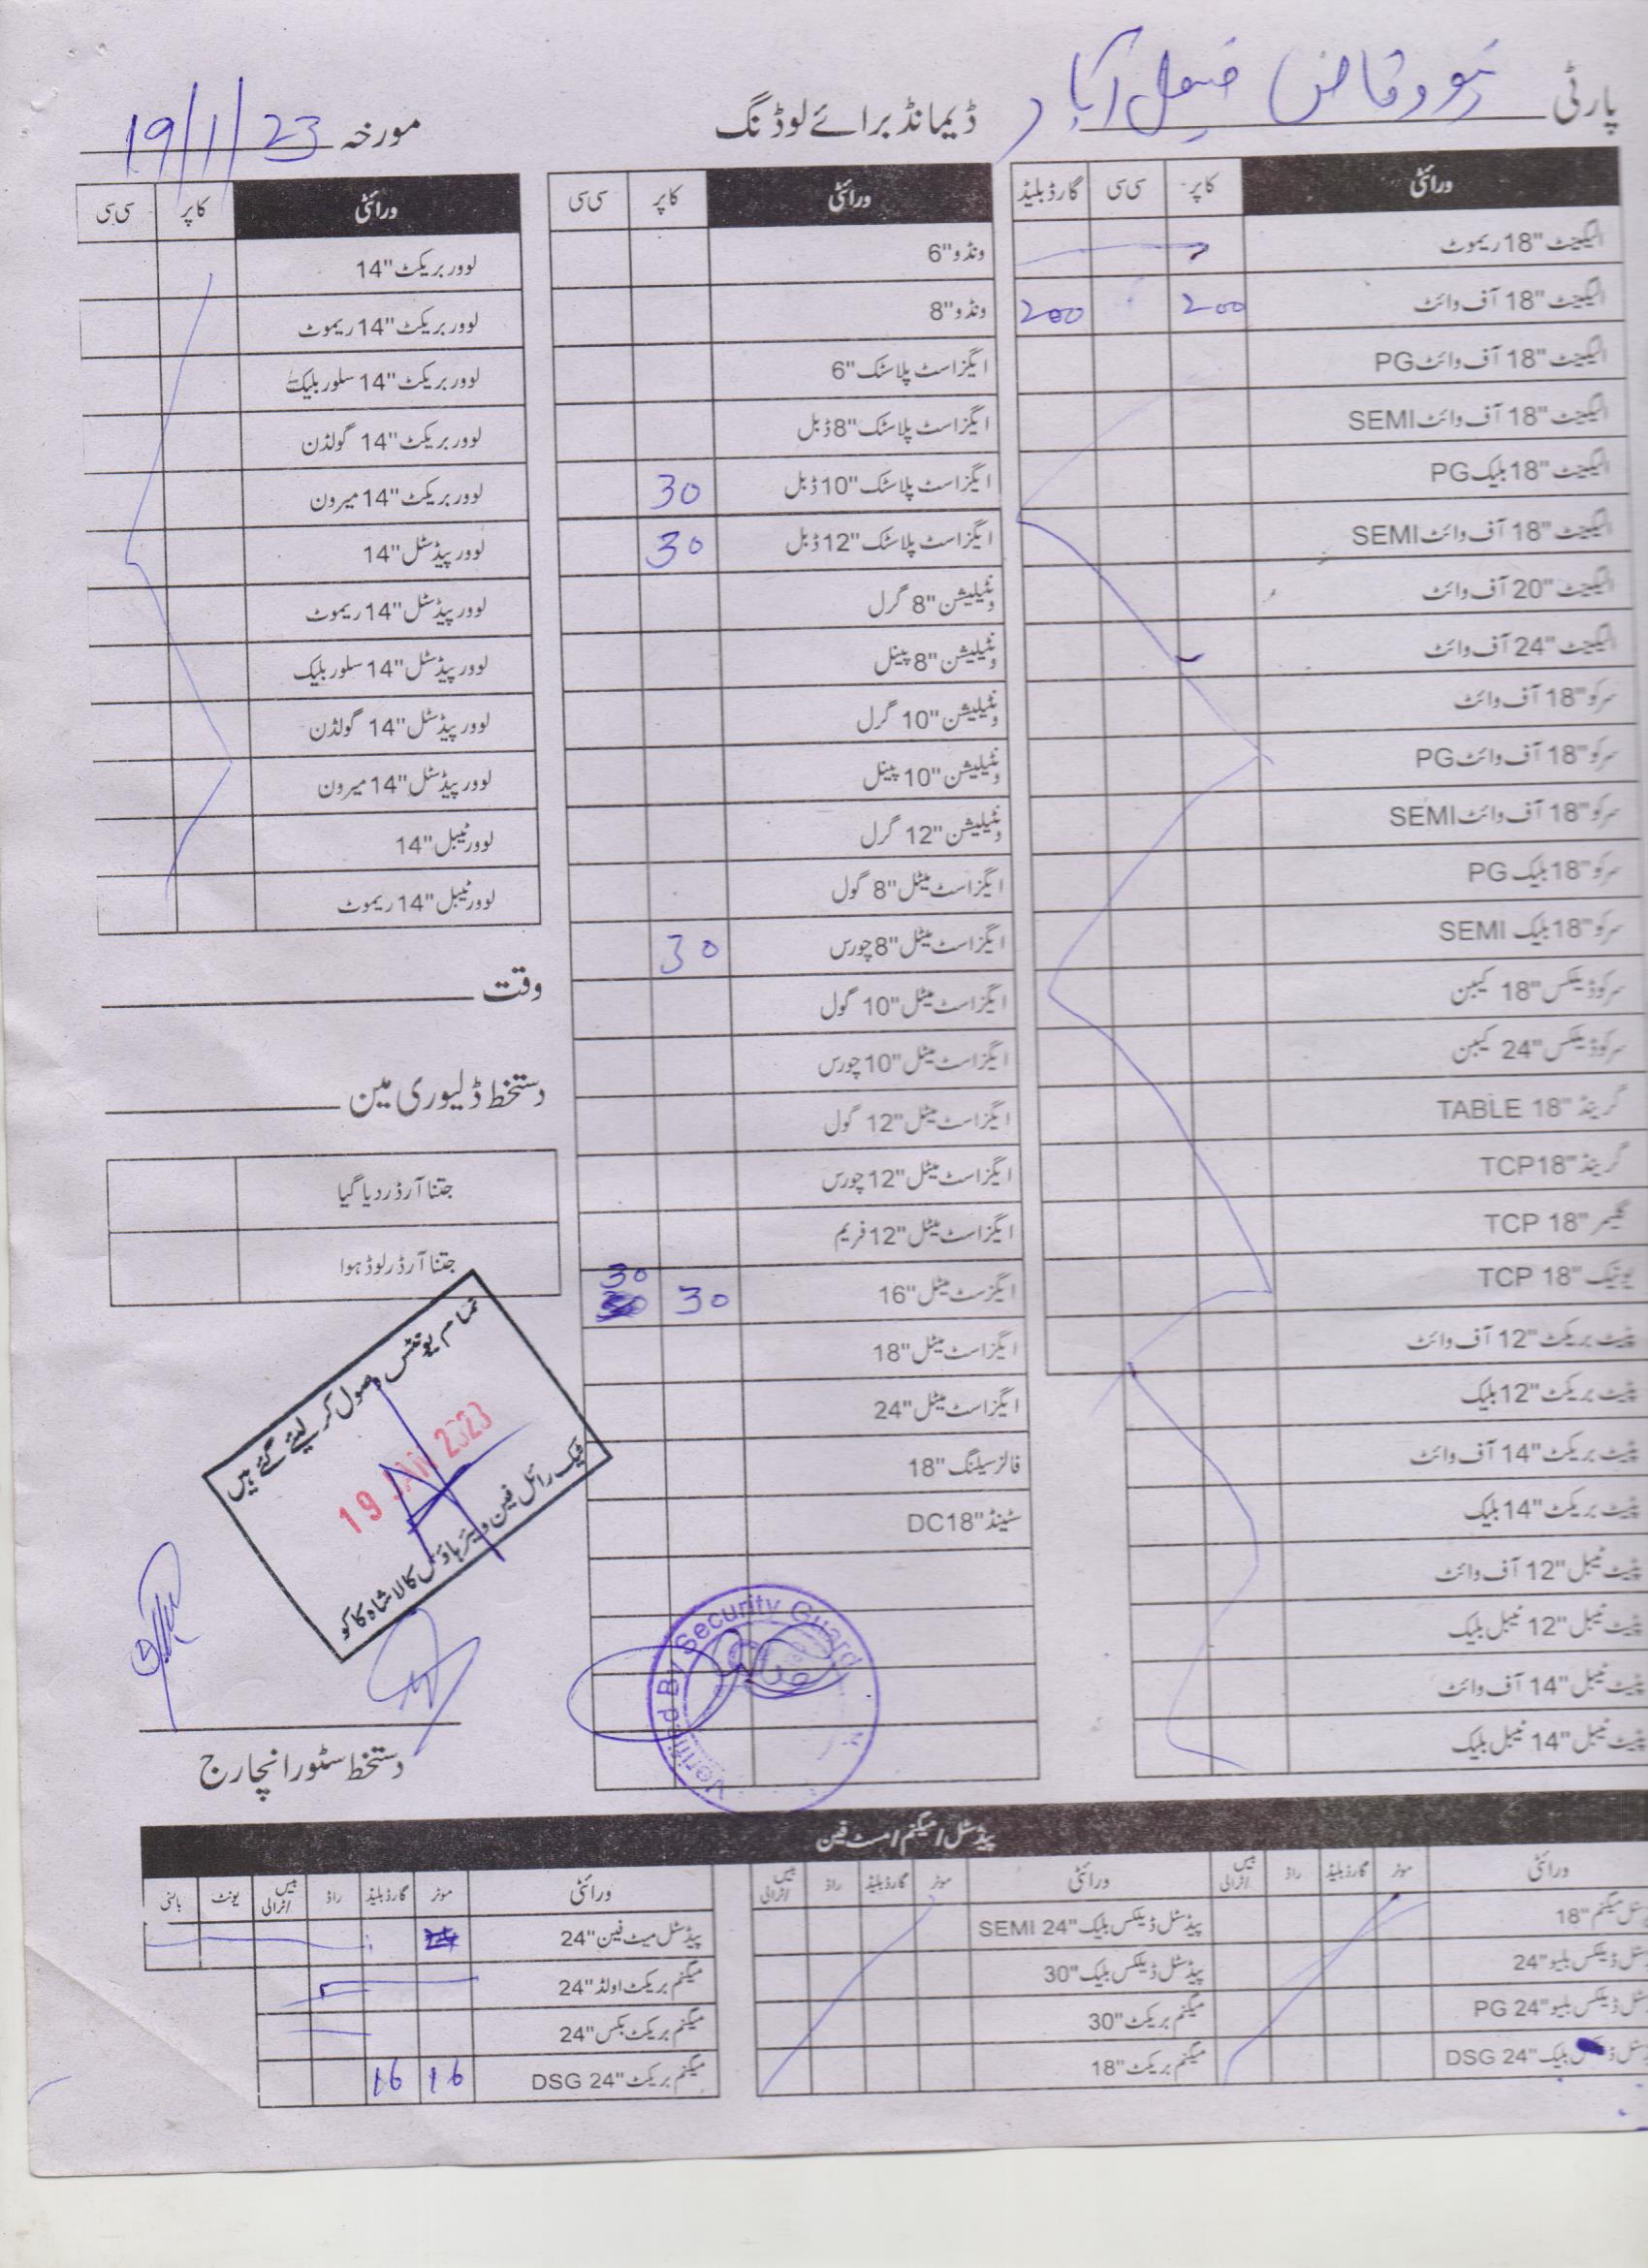 پارٹی نیو وقاص فیصل آباد
ڈیمانڈ برائے لوڈنگ
مورخہ 19/1/23
ورائٹی کاپر سی سی گارڈ بلیڈ
الیکینٹ "18 ریموٹ
الیکینٹ "18 آف وائٹ 200 200
الیکینٹ "18 آف وائٹ PG
الیکینٹ "18 آف وائٹ SEMI
الیکینٹ "18 بلیک PG
الیکینٹ "18 آف وائٹ SEMI
الیکینٹ "20 آف وائٹ
الیکینٹ "24 آف وائٹ
سرکو "18 آف وائٹ
سرکو "18 آف وائٹ PG
سرکو "18 آف وائٹ SEMI
سرکو "18 بلیک PG
سرکو "18 بلیک SEMI
سرکو ڈیلکس "18 کیبن
سرکو ڈیلکس "24 کیبن
گرینڈ "18 TABLE
گرینڈ "18 TCP
گلیمر "18 TCP
یونیک "18 TCP
پینٹ بریکٹ "12 آف وائٹ
پینٹ بریکٹ "12 بلیک
پینٹ بریکٹ "14 آف وائٹ
پینٹ بریکٹ "14 بلیک
پینٹ ٹیبل "12 آف وائٹ
پینٹ ٹیبل "12 ٹیبل بلیک
پینٹ ٹیبل "14 آف وائٹ
پینٹ ٹیبل "14 ٹیبل بلیک
ورائٹی کاپر سی سی
ونڈو "6
ونڈو "8
ایگزاسٹ پلاسٹک "6
ایگزاسٹ پلاسٹک "8 ڈبل
ایگزاسٹ پلاسٹک "10 ڈبل 30
ایگزاسٹ پلاسٹک "12 ڈبل 30
ونٹیلیشن "8 گرل
ونٹیلیشن "8 پینل
ونٹیلیشن "10 گرل
ونٹیلیشن "10 پینل
ونٹیلیشن "12 گرل
ایگزاسٹ میٹل "8 گول
ایگزاسٹ میٹل "8 چورس 30
ایگزاسٹ میٹل "10 گول
ایگزاسٹ میٹل "10 چورس
ایگزاسٹ میٹل "12 گول
ایگزاسٹ میٹل "12 چورس
ایگزاسٹ میٹل "12 فریم
ایگزسٹ میٹل "16 30 30
ایگزاسٹ میٹل "18
ایگزاسٹ میٹل "24
فالز سیلنگ "18
سٹینڈ "DC18
ورائٹی کاپر سی سی
لوور بریکٹ "14
لوور بریکٹ "14 ریموٹ
لوور بریکٹ "14 سلور بلیک
لوور بریکٹ "14 گولڈن
لوور بریکٹ "14 میرون
لوور پیڈسٹل "14
لوور پیڈسٹل "14 ریموٹ
لوور پیڈسٹل "14 سلور بلیک
لوور پیڈسٹل "14 گولڈن
لوور پیڈسٹل "14 میرون
لوور ٹیبل "14
لوور ٹیبل "14 ریموٹ
وقت
دستخط ڈلیوری مین
جتنا آرڈر دیا گیا
جتنا آرڈر لوڈ ہوا
تمام یونٹس وصول کر لیئے گئے ہیں
19 JAN 2023
ٹیک رائل فین ویئر ہاؤس کالا شاہ کاکو
Verified By Security Guard
دستخط سٹور انچارج
پیڈسٹل / میگنم / مسٹ فین
ورائٹی موٹر گارڈ بلیڈ راڈ بیس/ٹرالی
میگنم "18
ڈیلکس بلیو "24
ڈیلکس بلیو "24 PG
بلیک "24 DSG
ورائٹی موٹر گارڈ بلیڈ راڈ بیس/ٹرالی
پیڈسٹل ڈیلکس بلیک "24 SEMI
پیڈسٹل ڈیلکس بلیک "30
میگنم بریکٹ "30
میگنم بریکٹ "18
ورائٹی موٹر گارڈ بلیڈ راڈ بیس/ٹرالی یونٹ بالٹی
پیڈسٹل میٹ فین "24
میگنم بریکٹ اولڈ "24
میگنم بریکٹ بکس "24
میگنم بریکٹ "24 DSG 16 16